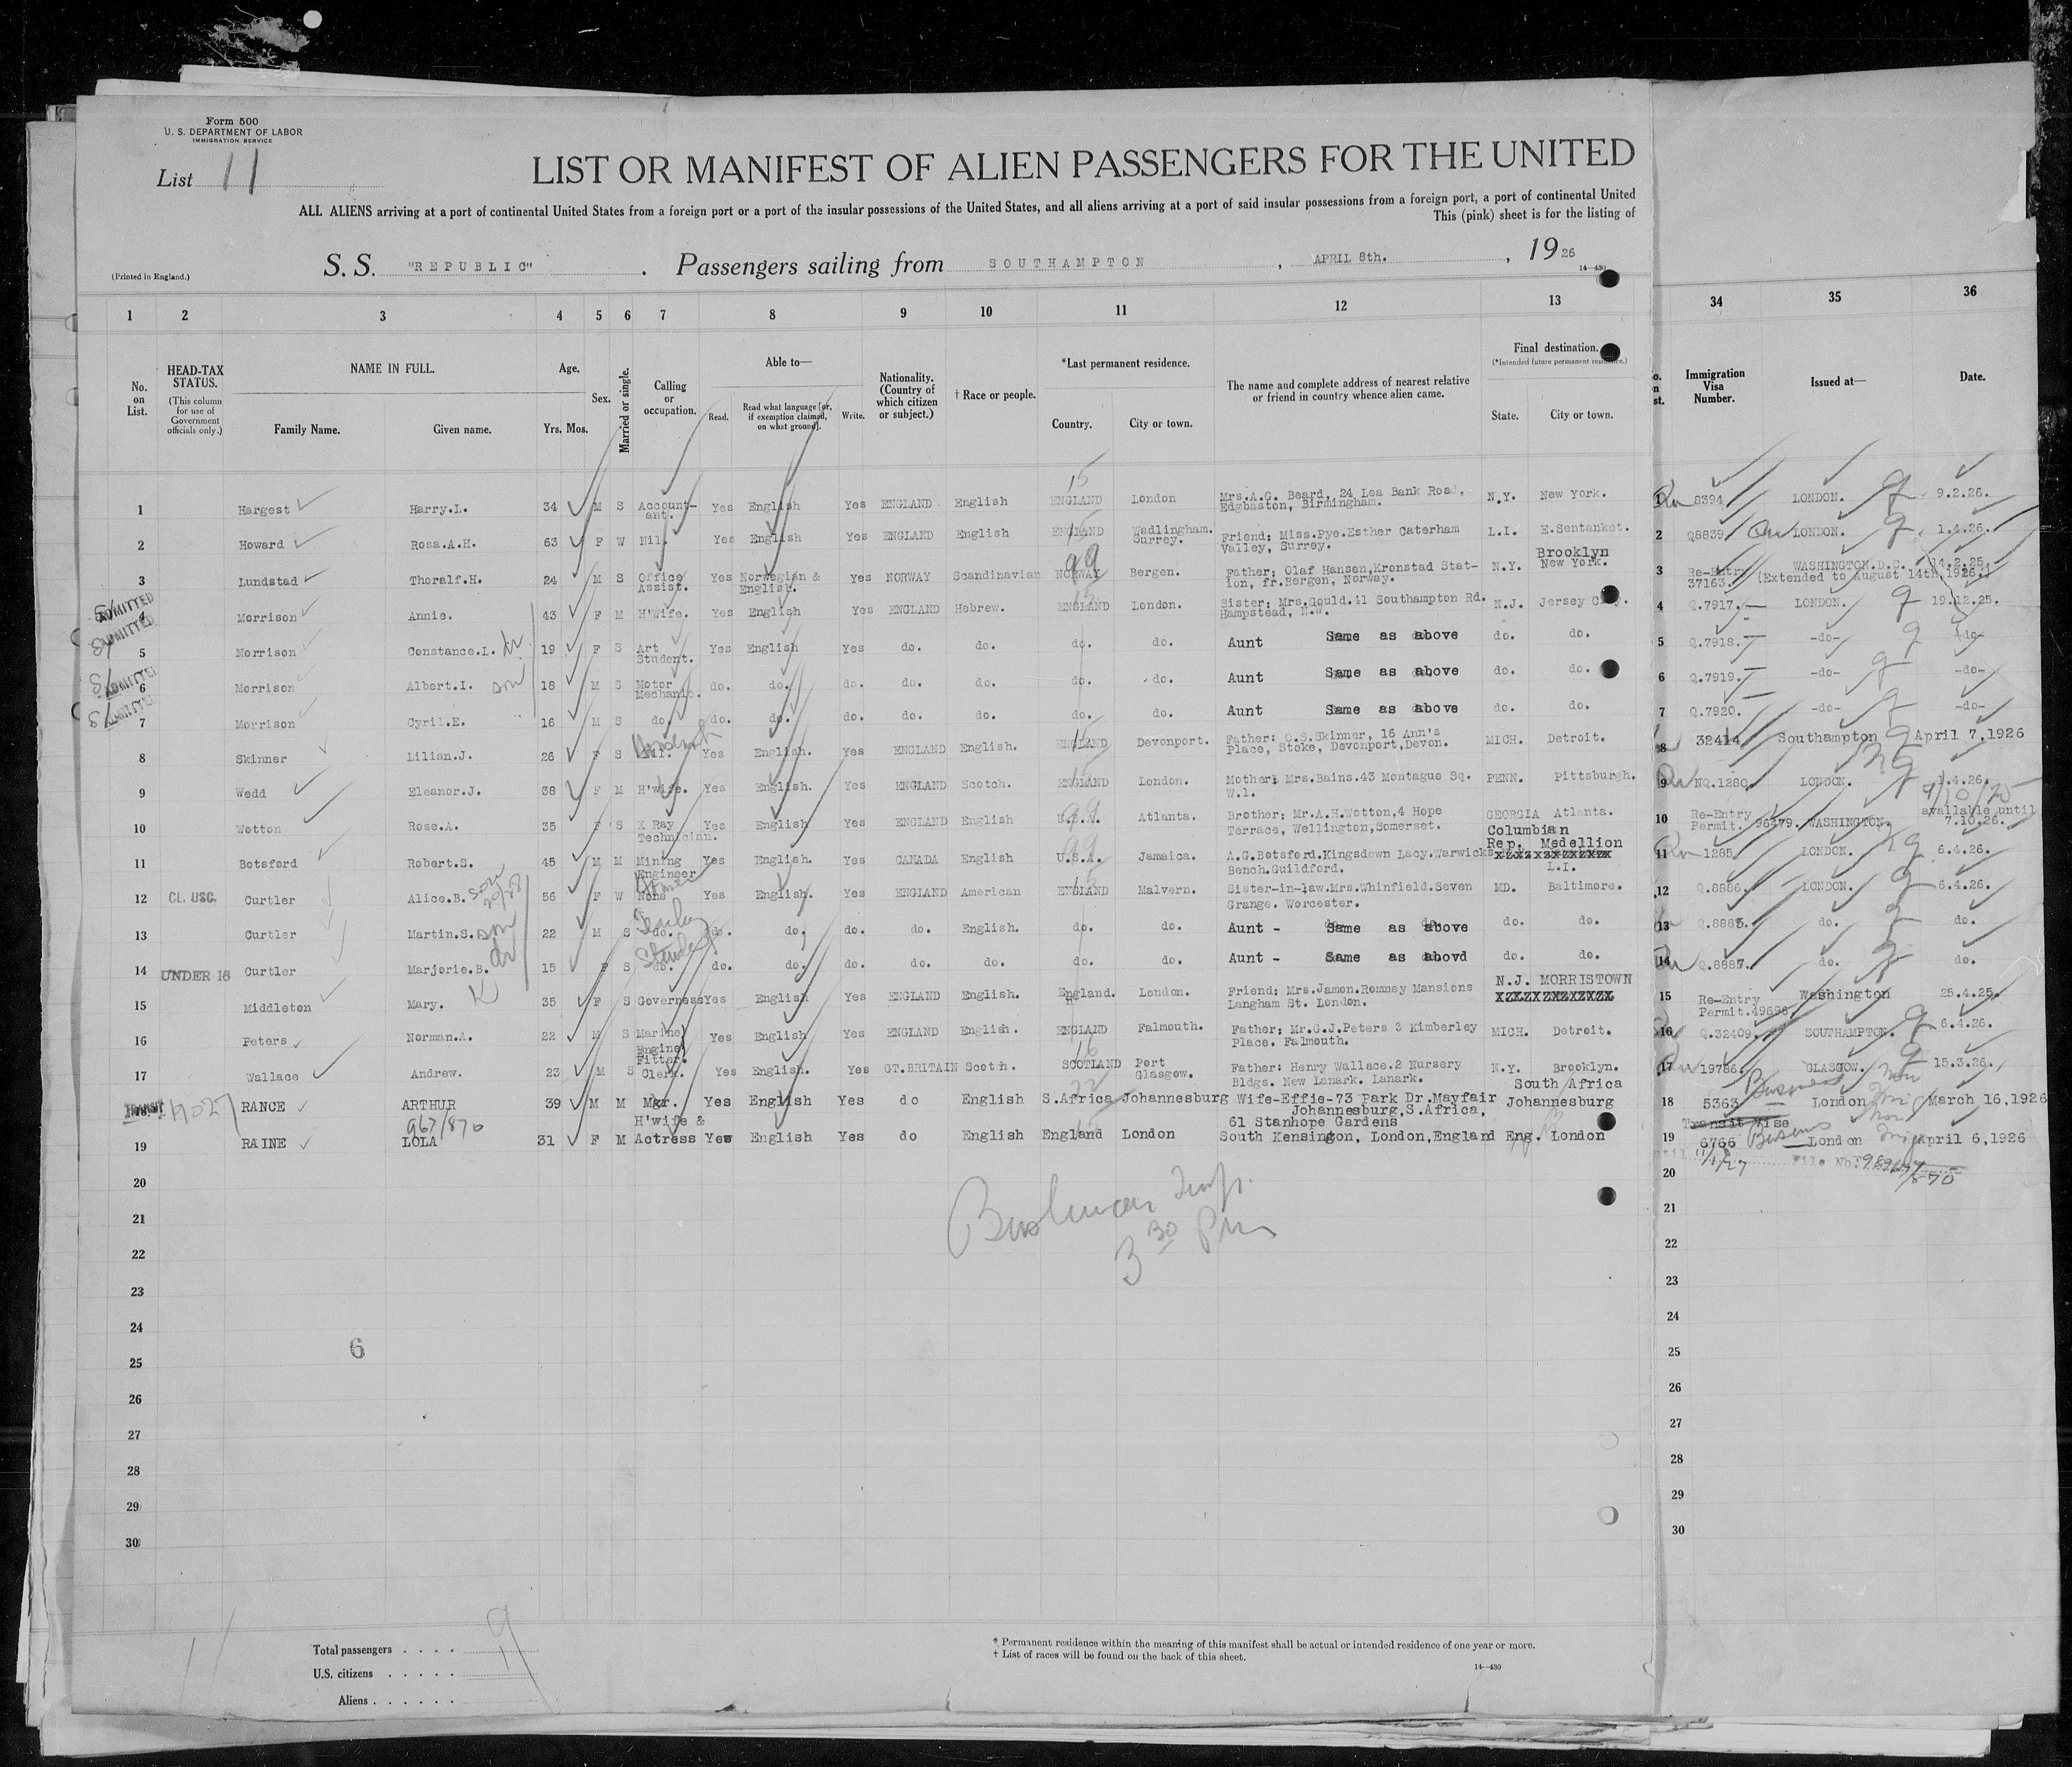 Form 500
U. S. DEPARTMENT OF LABOR
IMMIGRATION SERVICE
List 11
LIST OR MANIFEST OF ALIEN PASSENGERS FOR THE UNITED
ALL ALIENS arriving at a port of continental United States from a foreign port or a port of the insular possessions of the United States, and all aliens arriving at a port of said insular possessions from a foreign port, a port of continental United
This (pink) sheet is for the listing of
(Printed in England.)
S. S. "REPUBLIC" . Passengers sailing from SOUTHAMPTON , APRIL 8th. , 19 26
14—430
1 2 3 4 5 6 7 8 9 10 11 12 13 34 35 36
No. on List. HEAD-TAX STATUS. (This column for use of Government officials only.) NAME IN FULL. Family Name. Given name. Age. Yrs. Mos. Sex. Married or single. Calling or occupation. Able to— Read. Read what language [or, if exemption claimed, on what ground]. Write. Nationality. (Country of which citizen or subject.) † Race or people. *Last permanent residence. Country. City or town. The name and complete address of nearest relative or friend in country whence alien came. Final destination. (*Intended future permanent residence.) State. City or town. Immigration Visa Number. Issued at— Date.
1 Hargest Harry.L. 34 M S Account-ant. Yes English Yes ENGLAND English 15 ENGLAND London Mrs.A.G. Beard, 24 Lea Bank Road, Edgbaston, Birmingham. N.Y. New York. 1 8394 LONDON. 9.2.26.
2 Howard Rosa.A.H. 63 F W Nil. Yes English Yes ENGLAND English ENGLAND Wadlingham. Surrey. Friend; Miss.Pye.Esther Caterham Valley, Surrey. L.I. E.Sentanket. 2 Q8839 LONDON. 1.4.26.
3 Lundstad Thoralf.H. 24 M S Office Assist. Yes Norwegian & English. Yes NORWAY Scandinavian 99 NORWAY Bergen. Father; Olaf Hansen,Kronstad Stat-ion, fr.Bergen, Norway. N.Y. Brooklyn New York. 3 Re-Entry 37163. WASHINGTON.D.C. (Extended to August 14th,1926.) 14.2.25.
ADMITTED 4 Morrison Annie. 43 F M H'Wife. Yes English Yes ENGLAND Hebrew. 15 ENGLAND London. Sister; Mrs.Gould.11 Southampton Rd. Hampstead, N.W. N.J. Jersey C y. 4 Q.7917. LONDON. 19.12.25.
ADMITTED 5 Morrison Constance.L. 19 F S Art Student. Yes English Yes do. do. do. do. Aunt Same as above do. do. 5 Q.7918. -do- -do-
ADMITTED 6 Morrison Albert.I. son 18 M S Motor Mechanic. do. do. do. do. do. do. do. Aunt Same as above do. do. 6 Q.7919. -do- -do-
ADMITTED 7 Morrison Cyril.E. 16 M S do. do. do. do. do. do. do. do. Aunt Same as above do. do. 7 Q.7920. -do- -do-
8 Skinner Lilian.J. 26 F S Nil. Yes English. Yes ENGLAND English. 15 ENGLAND Devonport. Father: O.S.Skinner, 16 Ann's Place, Stoke, Devonport,Devon. MICH. Detroit. 8 32414 Southampton April 7,1926
9 Wedd Eleanor.J. 38 F M H'wife. Yes English. Yes ENGLAND Scotch. 15 ENGLAND London. Mother; Mrs.Bains.43 Montague Sq. W.1. PENN. Pittsburgh. 9 NQ.1280. LONDON. 1.4.26.
10 Wotton Rose.A. 35 F S X Ray Technician. Yes English Yes ENGLAND English 99 U.S.A. Atlanta. Brother; Mr.A.H.Wotton,4 Hope Terrace, Wellington,Somerset. GEORGIA Atlanta. 10 Re-Entry Permit. 96479. WASHINGTON. 9/10/25 available until 7.10.26.
11 Botsford Robert.S. 45 M M Mining Enginger Yes English. Yes CANADA English 99 U.S.A. Jamaica. A.G.Botsford.Kingsdown Lacy.Warwicks Bench.Guildford. Columbian Rep. Medellion L.I. 11 1285 LONDON. 6.4.26.
12 CL. USC. Curtler Alice.B. 56 F W None Yes English. Yes ENGLAND American 15 ENGLAND Malvern. Sister-in-law.Mrs.Whinfield.Seven Grange. Worcester. MD. Baltimore. 12 Q.8886. LONDON. 6.4.26.
13 Curtler Martin.S. son 22 M S do. do. do. do. do. English. do. do. Aunt - Same as above do. do. 13 Q.8885. do. do.
14 UNDER 16 Curtler Marjorie.B. 15 F S do. do. do. do. do. do. do. do. Aunt - Same as abovd do. do. 14 Q.8887. do. do.
15 Middleton Mary. 35 F S Governess Yes English Yes ENGLAND English. England. London. Friend; Mrs.Jamon.Romney Mansions Langham St. London. N.J. MORRISTOWN 15 Re-Entry Permit.49696. Washington 25.4.25.
16 Peters Norman.A. 22 M S Marine Engine Fitter. Yes English Yes ENGLAND English. ENGLAND Falmouth. Father; Mr.G.J.Peters 3 Kimberley Place. Falmouth. MICH. Detroit. 16 Q.32409. SOUTHAMPTON. 6.4.26.
17 Wallace Andrew. 23 M S Clerk. Yes English. Yes GT.BRITAIN Scotch. 16 SCOTLAND Port Glasgow. Father: Henry Wallace.2 Nursery Bldgs. New Lanark. Lanark. N.Y. Brooklyn. 17 19786. GLASGOW. 15.3.26.
TRANSIT RANCE ARTHUR 39 M M Mgr. Yes English Yes do English S.Africa Johannesburg Wife-Effie-73 Park Dr.Mayfair Johannesburg,S.Africa, South Africa Johannesburg 18 5363 London March 16,1926
Transit Vise
967/870
19 RAINE LOLA 31 F M H'wife & Actress Yes English Yes do English England London 61 Stanhope Gardens South Kensington, London,England Eng. London 19 6766 London April 6,1926
File No.
20 20
21 21
22 22
3 30 Pm
23 23
24 24
6
25 25
26 26
27 27
28 28
29 29
30 30
Total passengers . . . .
U.S. citizens . . . . .
Aliens . . . . . .
* Permanent residence within the meaning of this manifest shall be actual or intended residence of one year or more.
† List of races will be found on the back of this sheet.
14—430